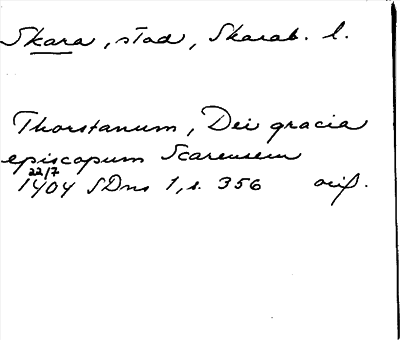 Skara, stad, Skarab. l.
Thorstanum, Dei gracia
episcopum Scarensem
22/7
1404 SDns 1, s. 356 orig.